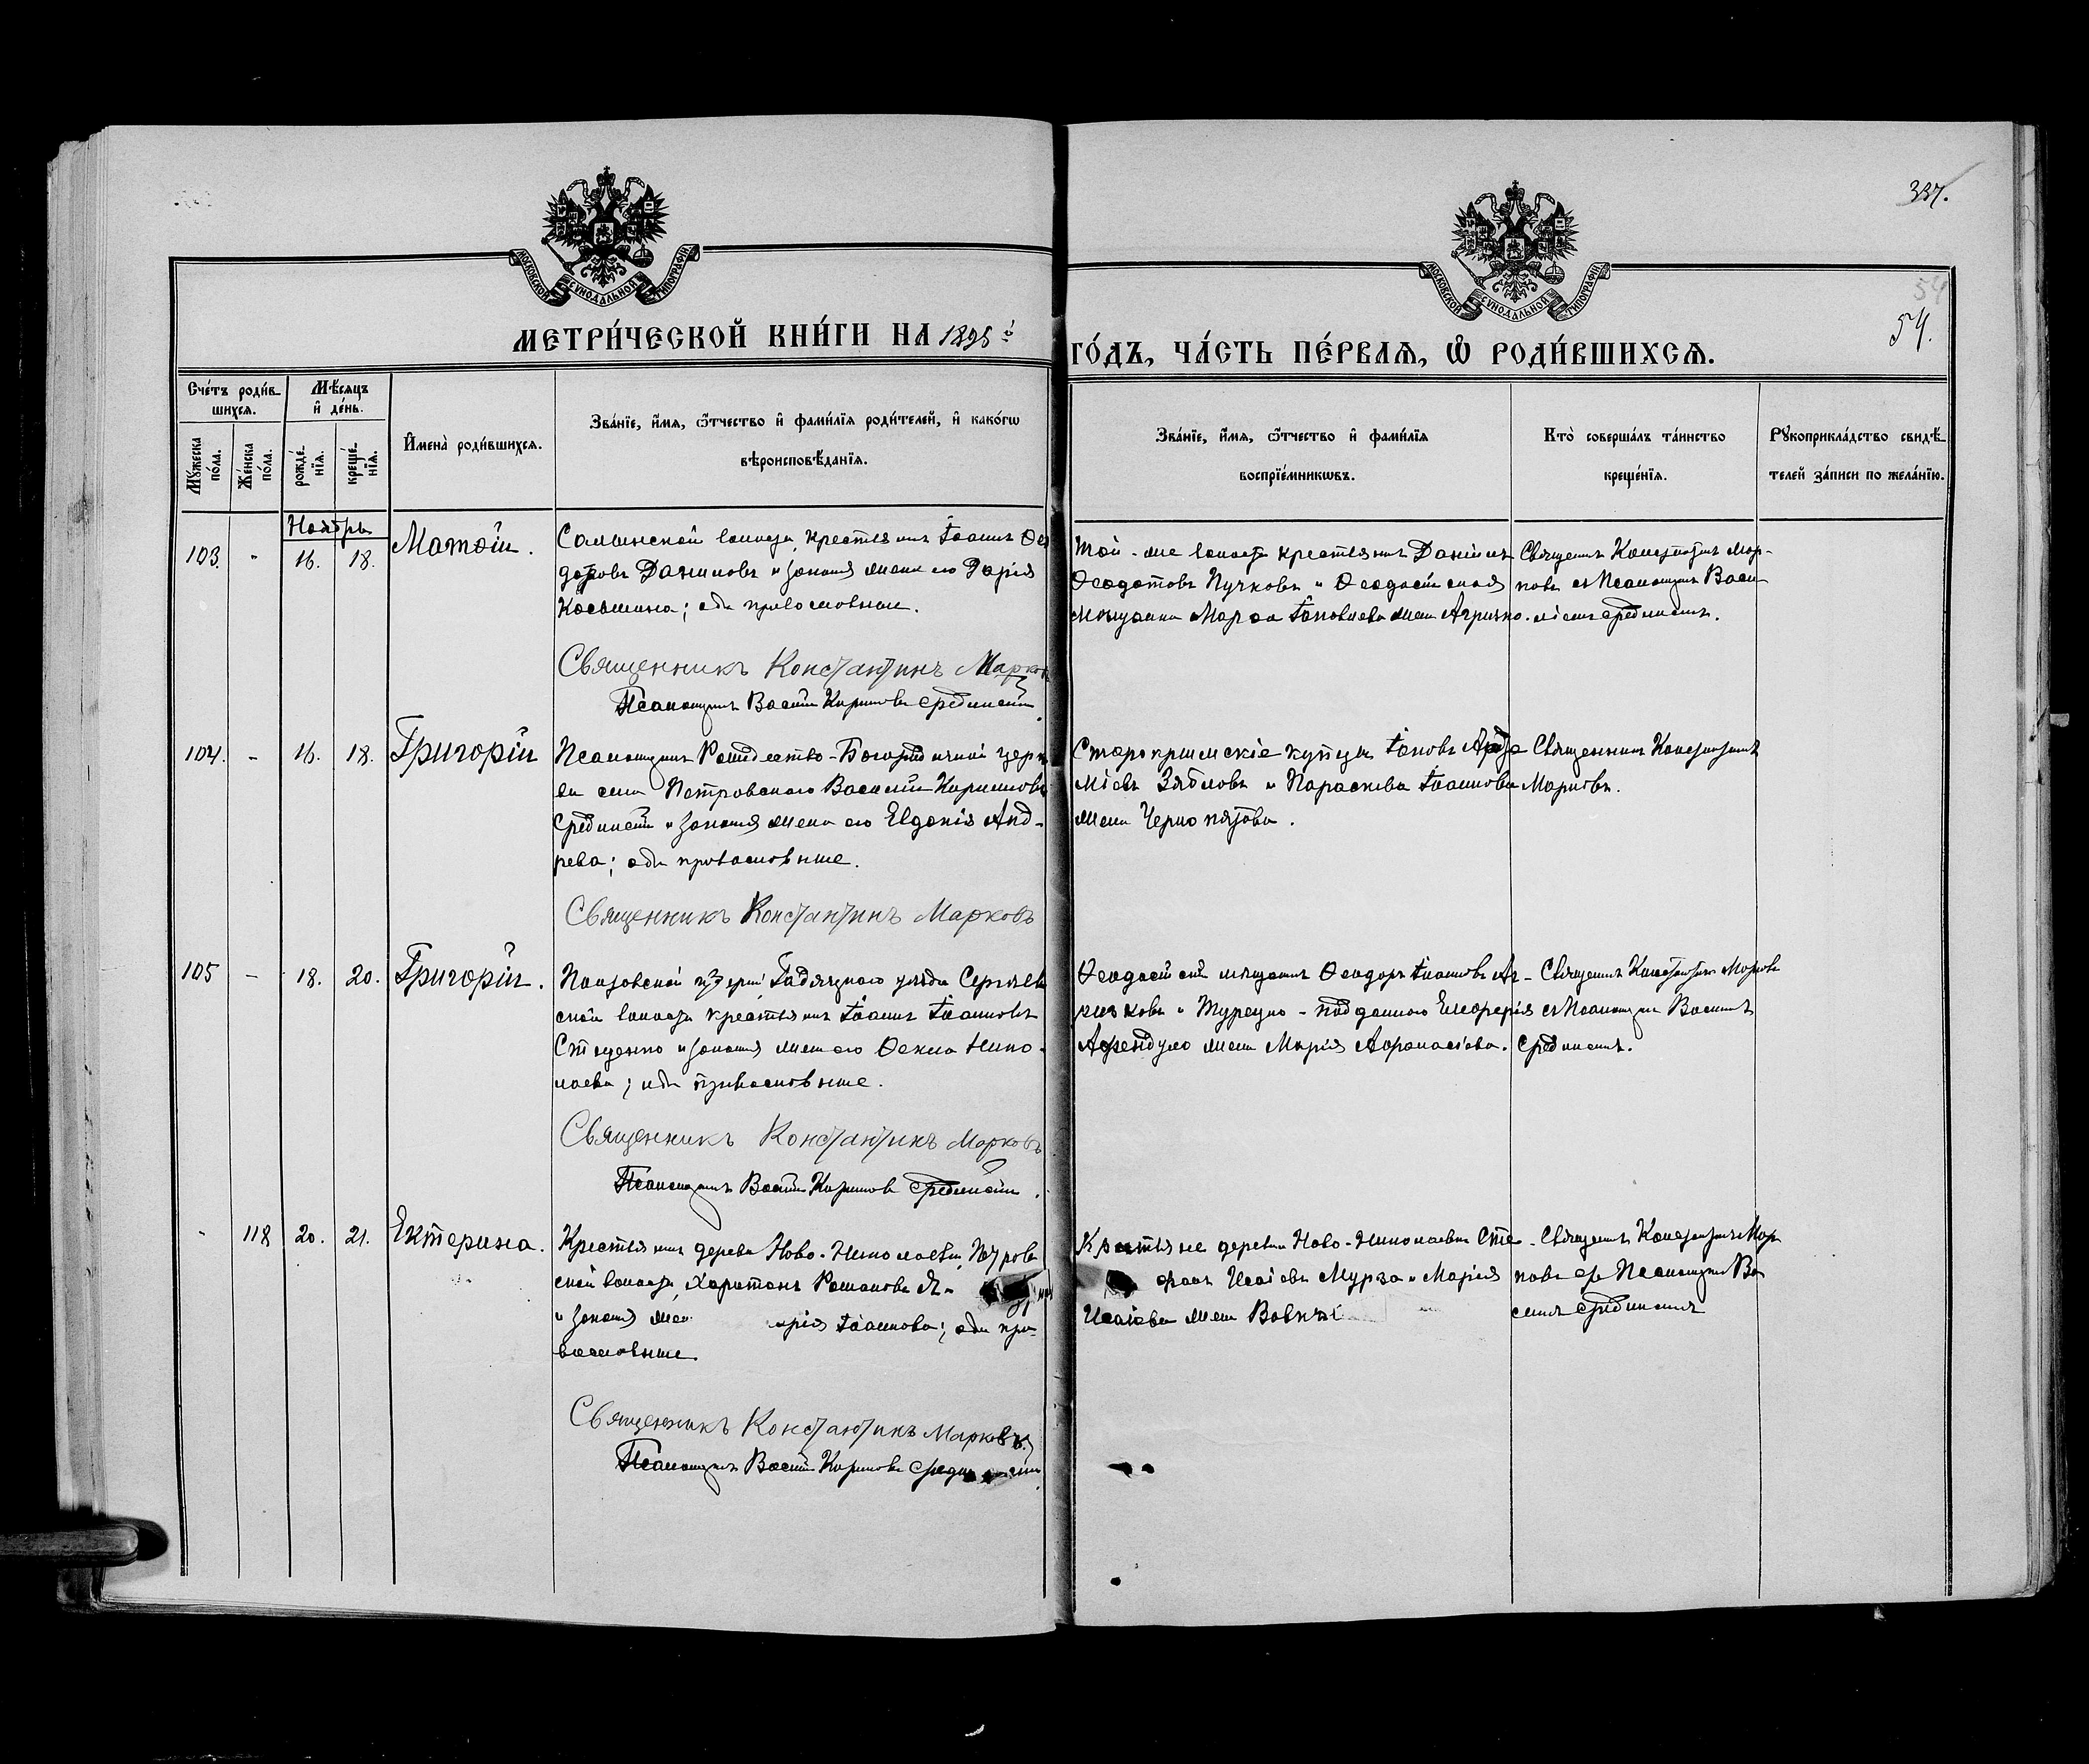 337.
54
54.
МОСКОВСКОЙ СѴНОДАЛЬНОЙ ТИПОГРАФІИ
МОСКОВСКОЙ СѴНОДАЛЬНОЙ ТИПОГРАФІИ
МЕТРИ́ЧЕСКОЙ КНИ́ГИ НА 1895й
ГО́ДЪ, ЧА́СТЬ ПЕ́РВАѦ, Ѡ҆ РОДИ́ВШИХСѦ.
Сче́тъ роди́в-
шихсѧ.
Мѣ́сѧцъ
и҆ де́нь.
Мꙋ́жеска по́ла.
Же́нска по́ла.
рожде́-
нїѧ.
креще́-
нїѧ.
И҆мена̀ роди́вшихсѧ.
Зва́нїе, и҆́мѧ, ѻ҆́тчество и҆ фами́лїѧ роди́телей, и҆ како́гѡ
вѣроисповѣ́данїѧ.
Зва́нїе, и҆́мѧ, ѻ҆́тчество и҆ фами́лїѧ
воспрїе́мникѡвъ.
Кто̀ соверша́лъ та́инство
креще́нїѧ.
Рꙋкоприкла́дство свидѣ́-
телей за́писи по жела́нїю.
Ноябрь
103. - 16. 18. Матѳій.
Салынской волости, крестьянинъ Іоаннъ Ѳео
доровъ Даниловъ и законная жена его Дарія
Косьмина; оба православные.
Священникъ Константинъ Марковъ
Псаломщикъ Василій Кириловъ Срединскій.
Той-же волости крестьянинъ Даніилъ
Ѳеодотовъ Пучковъ и Ѳеодосійская
Марѳа жена
Священникъ Константинъ Мар-
ковъ съ Псаломщикомъ Васи-
ліемъ Срединскимъ.
104. - 16. 18. Григорій
Псаломщикъ Рождество-Богородичной церк
ви села Петровскаго Василій Кириловъ
Срединскій и законная жена его Евдокія Анд-
рева; оба православные.
Священникъ Константинъ Марковъ
Старокрымскіе купцы Іаковъ
Зябловъ и Параскева Іоаннова
жена
Священникъ Константинъ
Марковъ.
105 - 18. 20. Григорій.
Полтавской губерніи, Гадячскаго уѣзда Сергіев
ской волости крестьянинъ Іоаннъ Іоанновъ
Стеценко и законная жена его Ѳекла Нико-
лаева; оба православные.
Священникъ Константинъ Марковъ
Псаломщикъ Василій Кириловъ Срединскій.
Ѳеодосійскій мѣщанинъ Ѳеодоръ Іоанновъ
и Турецко-подданнаго Елеферія
жена Марія Аѳанасіева.
Священникъ Константинъ Марковъ
съ Псаломщикомъ Василіемъ
Срединскимъ.
- 118 20. 21. Екатерина.
Крестьянинъ деревни Ново-Николаевки,
ской волости, Харитонъ Романовъ
и законная жена Іоаннова; оба пра-
вославные.
Священникъ Константинъ Марковъ.
Псаломщикъ Василій Кириловъ Срединскій.
Крестьяне деревни Ново-Николаевки Сте-
фанъ Исаіевъ Мурза и Марія
Исаіева жена
Священникъ Константинъ Мар
ковъ съ Псаломщикомъ Ва
силіемъ Срединскимъ